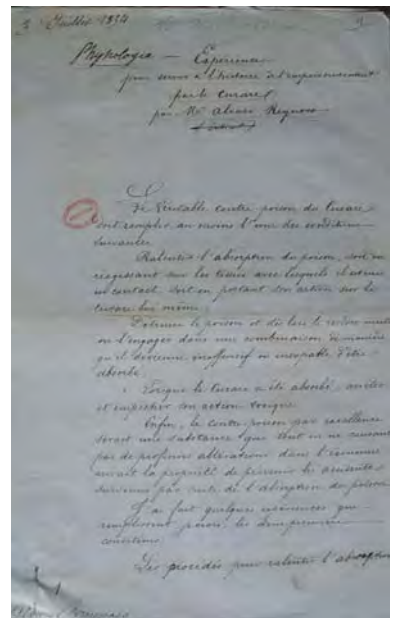 3 Juillet 1854
Physiologie — Expériences
pour servir à l'histoire de l'empoisonnement
par le curare
par Mr Alvaro Reynoso
Le véritable contre poison du curare
doit remplir au moins l'une des conditions
suivantes
Ralentir l'absorption du poison, soit en
réagissant sur les tissus avec lesquels il est mis
en contact soit en portant son action sur le
curare lui même.
Détruire le poison et dès lors le rendre inerte
ou l'engager dans une combinaison de manière
qu'il devienne inoffensif ou incapable d'être
absorbé.
Lorsque le curare a été absorbé, arrêter
et empêcher son action toxique.
Enfin, le contre poison par excellence
serait une substance qui tout en ne causant
pas de profondes altérations dans l'économie
aurait la propriété de prévenir les accidents
survenus par suite de l'absorption du poison
J'ai fait quelques expériences qui
remplissent les deux premières
conditions.
Les procédés pour ralentir l'absorption